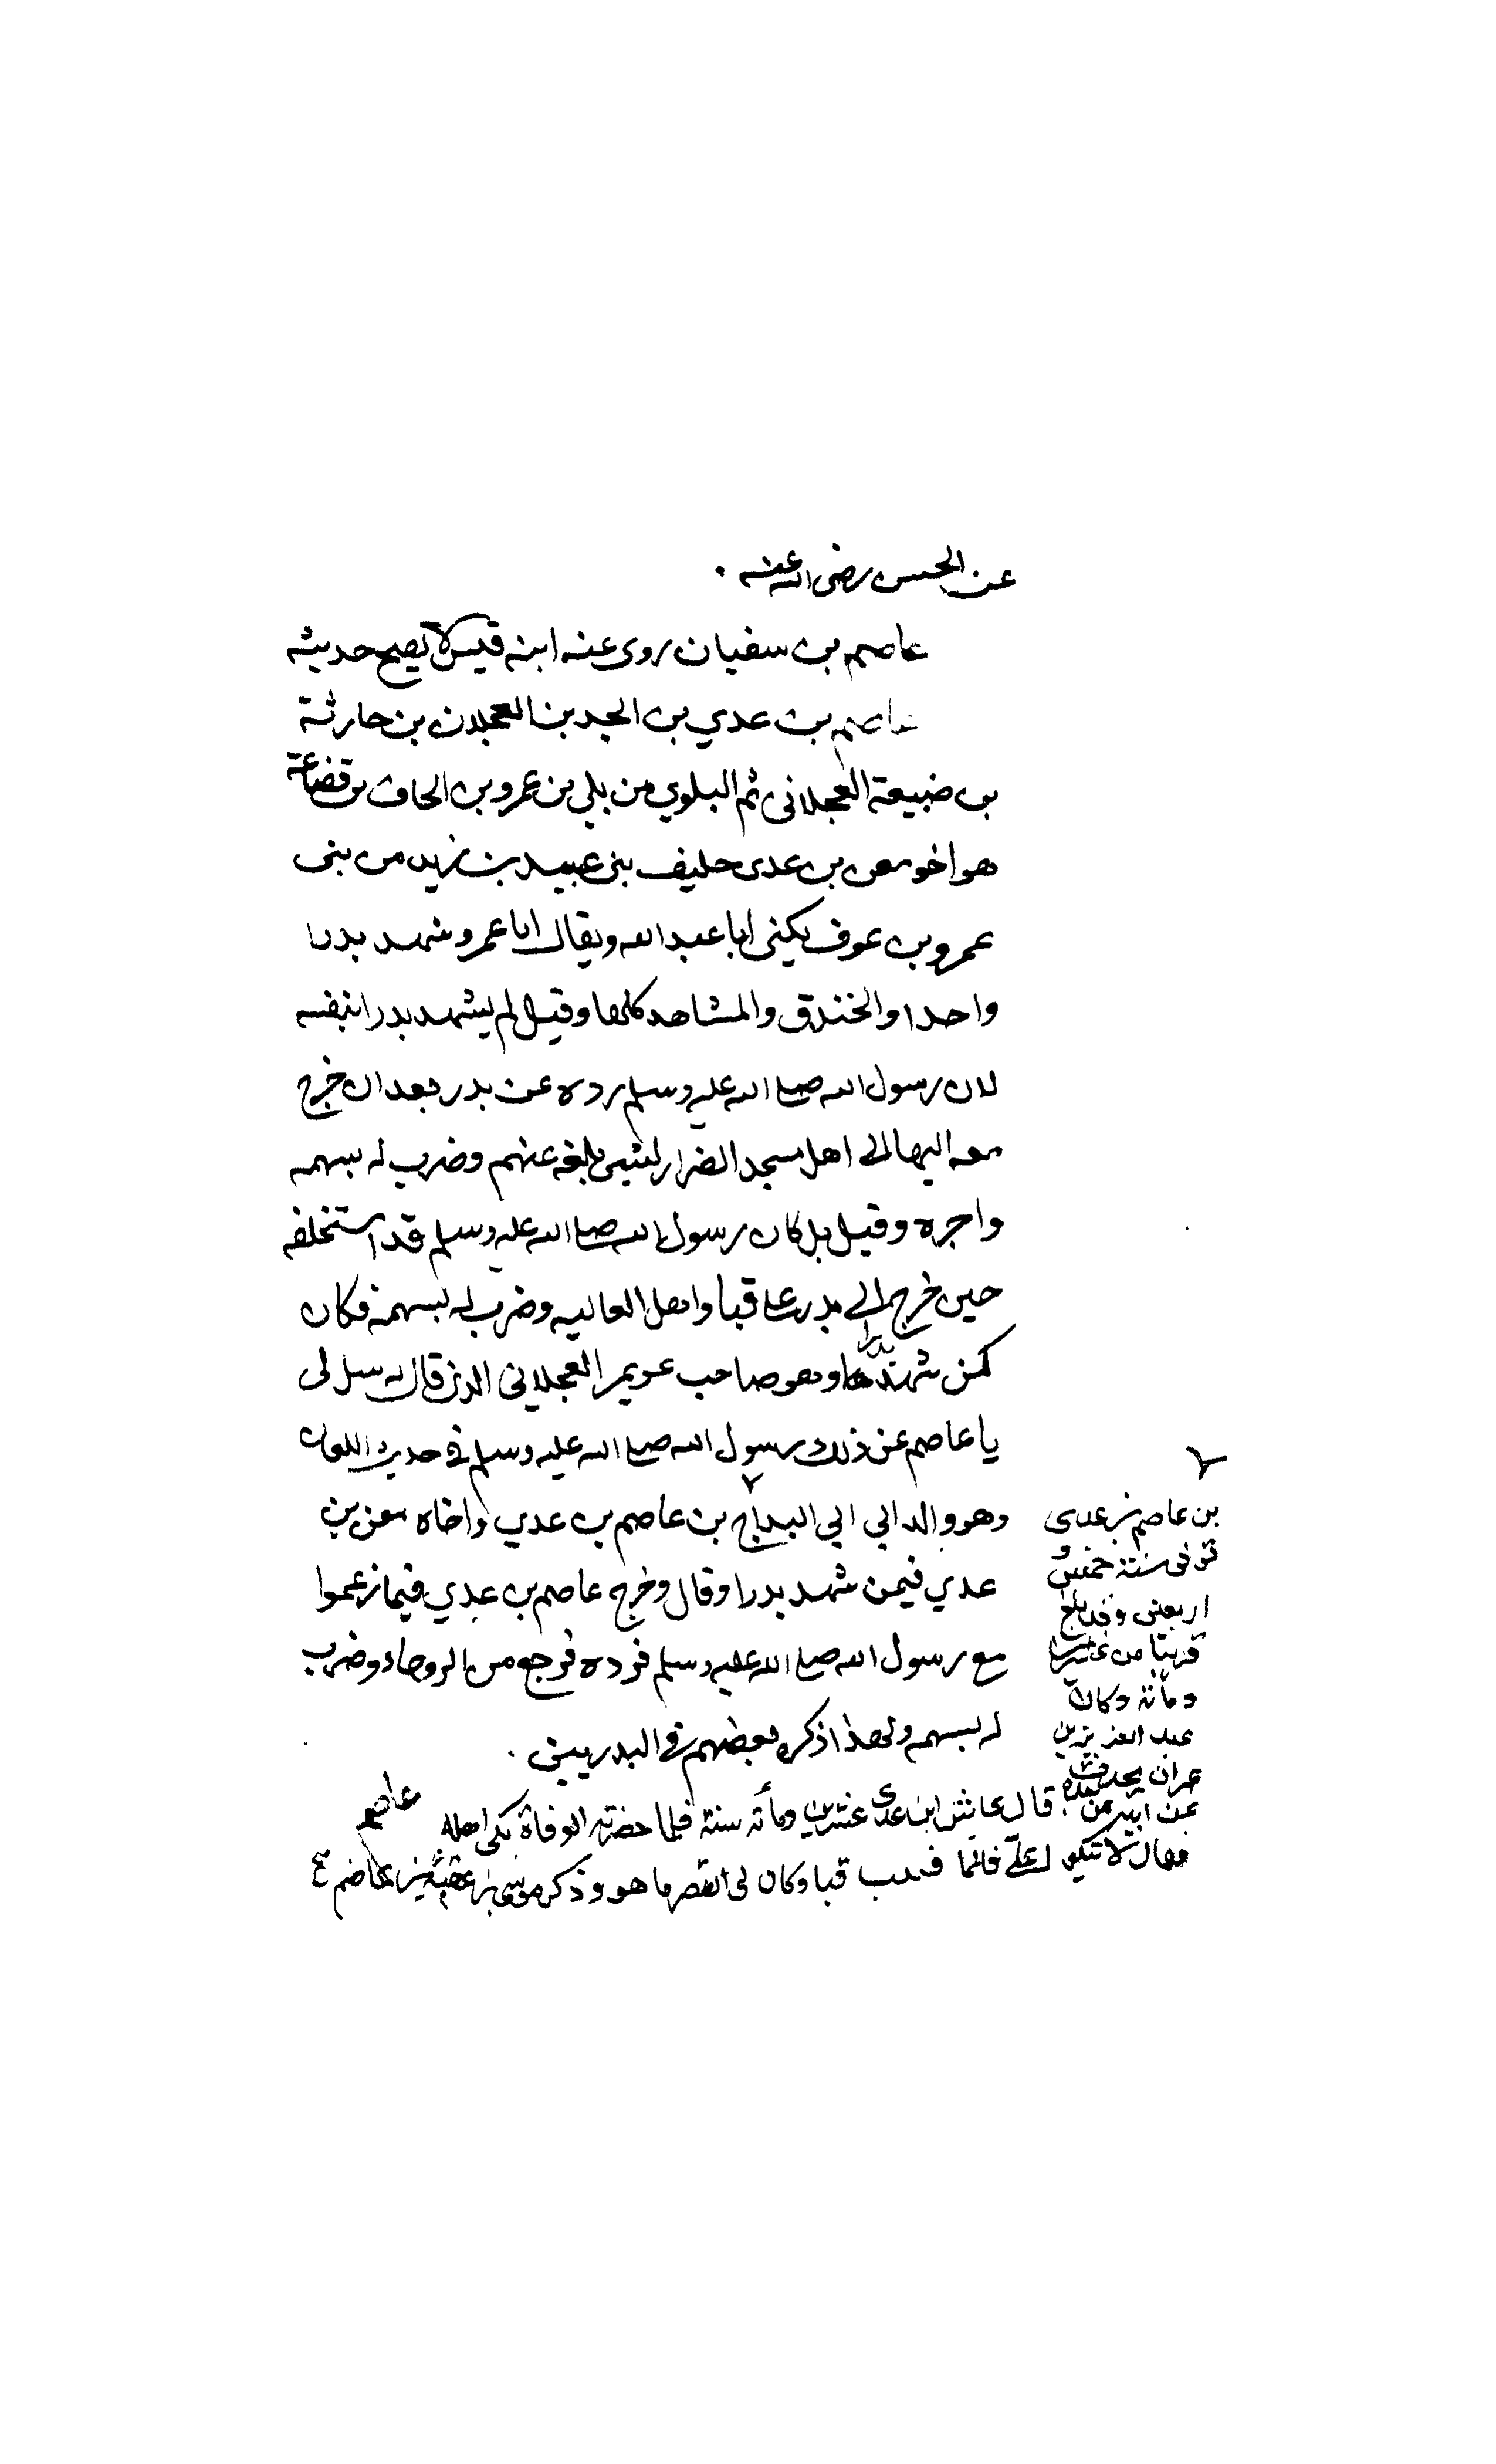 عن الحسن رضى الله عنه .
عاصم بن سفيان روى عنه ابنه قيس لا يصح حديثه
عاصم بن عدي بن الجد بن العجلان بن حارثة
بن ضبيعة العجلانى ثم البلوي من بلي بن عمرو بن الحاف بن قضاعة
هو اخو معن بن عدى حليف بنى عبيد بن زيد من بنى
عمرو بن عوف يكنى ابا عبد الله ويقال ابا عمرو شهد بدرا
واحدا والخندق والمشاهد كلها وقيل لم يشهد بدرا بنفسه
لان رسول الله صلى الله عليه وسلم رده عن بدر بعد ان خرج
معه اليها الى اهل مسجد الضرار لشى بلغه عنهم وضرب له بسهمه
واجره وقيل بل كان رسول الله صلى الله عليه وسلم قد استخلفه
حين خرج الى بدر على قبا واهل العاليه وضرب له بسهمه فكان
كمن شهد بدرا وهو صاحب عويمر العجلاني الذى قال له سل لى
يا عاصم عن ذلك رسول الله صلى الله عليه وسلم فى حديث اللعان
وهو والد ابي ابي البداح بن عاصم بن عدي واخاه معن بن
عدي فيمن شهد بدرا وقال وخرج عاصم بن عدي فيما زعموا
مع رسول الله صلى الله عليه وسلم فرده فرجع من الروحاء وضرب
له بسهمه ولهذا ذكره بعضهم فى البدريين .
بن عاصم بن عدى
توفى سنة خمس و
اربعين وقد بلغ
قريبا من عشرين
ومأة وكان
عبد العزيز بن
عمران يحدث
عن ابيه عن جده قال عاش ابن عدى عشرين ومأة سنة فلما حضرته الوفاة بكى اهله
فقال لا تبكوا علىّ فانما قبا وكان لى القصر ما هو وذكر موسى بن عقبة عاصم
عاصم